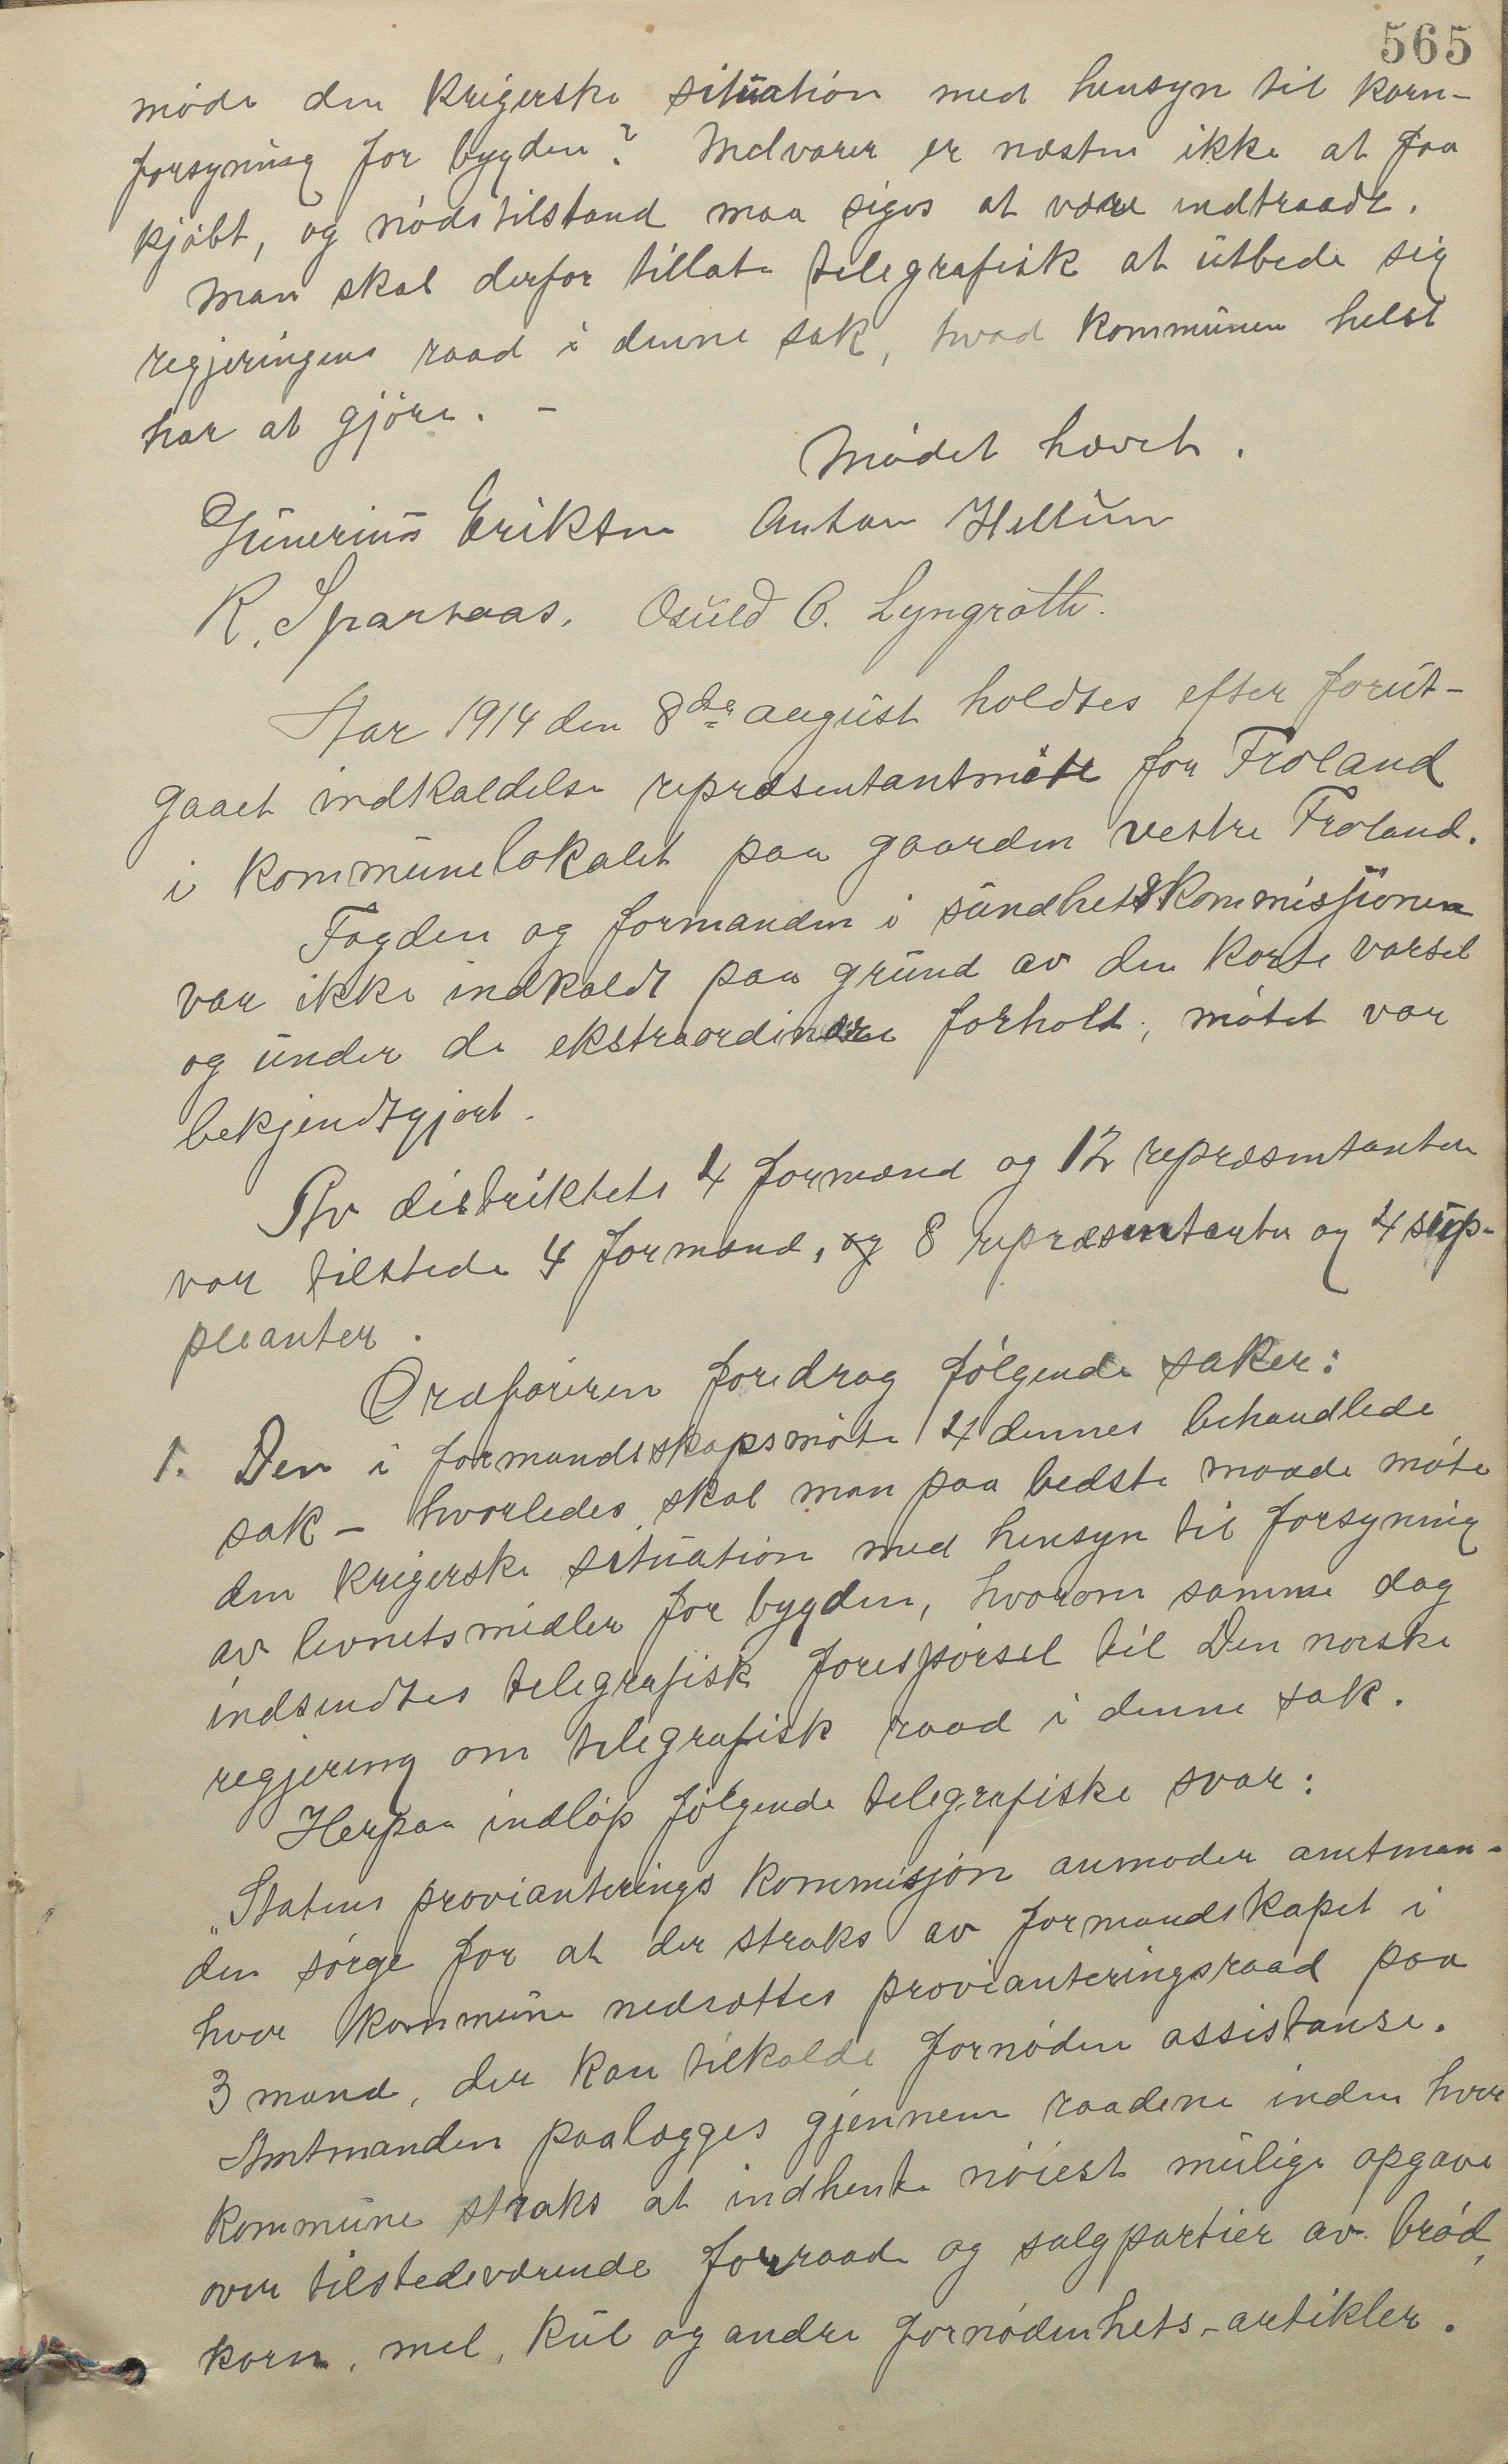 565
møde den krigerske situation med hensyn til korn-
forsyning for bygden? Melvarer er næsten ikke at faa
kjøbt, og nødstilstand maa siges at være indtraadt.
Man skal derfor tillate telegrafisk at utbede sig
regjeringens raad i denne sak, hvad kommunen helst
har at gjøre. –
Mødet hævet.
Gunerius Eriksen Anton Hellum
R. Sparsaas. Osuld O. Lyngroth.
Aar 1914 den 8de august holdtes efter forut-
gaaet indkaldelse repræsentantmøte for Froland
i kommunelokalet paa gaarden vestre Froland.
Fogden og formanden i sundhetskommissionen
var ikke indkaldt paa grund av den korte varsel
og under de ekstraordinære forhold; møtet var
bekjendtgjort.
Av distriktets 4 formænd og 12 repræsentanter
var tilstede 4 formænd, og 8 repræsentanter og 4 sup-
pleanter.
Ordføreren foredrog følgende saker:
1. Den i formandsskapsmøte 4 dennes behandlede
sak – hvorledes skal man paa bedste maade møte
den krigerske situation med hensyn til forsyning
av levnetsmidler for bygden, hvorom samme dag
indsendtes telegrafisk forespørsel til Den norske
regjering om telegrafisk raad i denne sak.
Herpaa indløp følgende telegrafiske svar:
"Statens provianterings kommisjon anmoder amtman-
den sørge for at der straks av formandskapet i
hver kommune nedsættes provianteringsraad paa
3 mand, der kan tilkalde fornøden assistanse.
Amtmanden paalægges gjennem raadene inden hver
kommune straks at indhente nøiest mulige opgave
over tilstedeværende forraad og salgpartier av brød,
korn, mel, kul og andre fornødenhets-artikler.